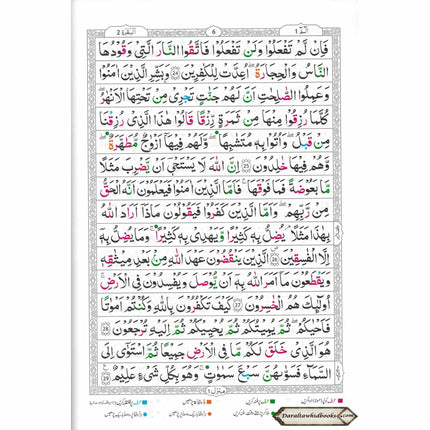 البقرة 2
6
الٓمّٓ 1
فَاِنْ لَّمْ تَفْعَلُوْا وَلَنْ تَفْعَلُوْا فَاتَّقُوا النَّارَ الَّتِيْ وَقُوْدُهَا
النَّاسُ وَالْحِجَارَةُ ۖ اُعِدَّتْ لِلْكٰفِرِيْنَ 24 وَبَشِّرِ الَّذِيْنَ اٰمَنُوْا
وَعَمِلُوا الصّٰلِحٰتِ اَنَّ لَهُمْ جَنّٰتٍ تَجْرِيْ مِنْ تَحْتِهَا الْاَنْهٰرُ
كُلَّمَا رُزِقُوْا مِنْهَا مِنْ ثَمَرَةٍ رِّزْقًا قَالُوْا هٰذَا الَّذِيْ رُزِقْنَا
مِنْ قَبْلُ وَاُتُوْا بِهٖ مُتَشَابِهًا وَلَهُمْ فِيْهَآ اَزْوَاجٌ مُّطَهَّرَةٌ
وَّهُمْ فِيْهَا خٰلِدُوْنَ 25 اِنَّ اللّٰهَ لَا يَسْتَحْيٖٓ اَنْ يَّضْرِبَ مَثَلًا
مَّا بَعُوْضَةً فَمَا فَوْقَهَا فَاَمَّا الَّذِيْنَ اٰمَنُوْا فَيَعْلَمُوْنَ اَنَّهُ الْحَقُّ
مِنْ رَّبِّهِمْ وَاَمَّا الَّذِيْنَ كَفَرُوْا فَيَقُوْلُوْنَ مَاذَآ اَرَادَ اللّٰهُ
بِهٰذَا مَثَلًا يُضِلُّ بِهٖ كَثِيْرًا وَّيَهْدِيْ بِهٖ كَثِيْرًا وَمَا يُضِلُّ بِهٖٓ
اِلَّا الْفٰسِقِيْنَ 26 الَّذِيْنَ يَنْقُضُوْنَ عَهْدَ اللّٰهِ مِنْ بَعْدِ مِيْثَاقِهٖ
وَيَقْطَعُوْنَ مَآ اَمَرَ اللّٰهُ بِهٖٓ اَنْ يُّوْصَلَ وَيُفْسِدُوْنَ فِي الْاَرْضِ
اُولٰٓئِكَ هُمُ الْخٰسِرُوْنَ 27 كَيْفَ تَكْفُرُوْنَ بِاللّٰهِ وَكُنْتُمْ اَمْوَاتًا
فَاَحْيَاكُمْ ثُمَّ يُمِيْتُكُمْ ثُمَّ يُحْيِيْكُمْ ثُمَّ اِلَيْهِ تُرْجَعُوْنَ 28
هُوَ الَّذِيْ خَلَقَ لَكُمْ مَّا فِي الْاَرْضِ جَمِيْعًا ثُمَّ اسْتَوٰٓى اِلَى
السَّمَآءِ فَسَوّٰىهُنَّ سَبْعَ سَمٰوٰتٍ وَهُوَ بِكُلِّ شَيْءٍ عَلِيْمٌ 29
منزل ١
Daraltawhidbooks.com